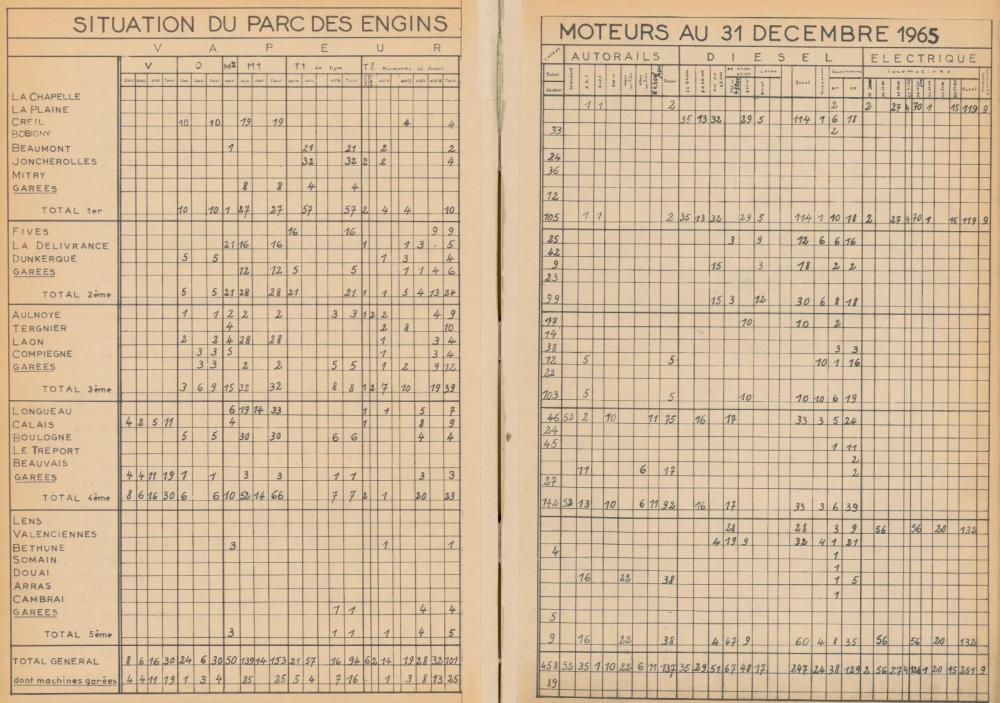 SITUATION DU PARC DES ENGINS
MOTEURS AU 31 DECEMBRE 1965
V A P E U R
AUTORAILS DIESEL ELECTRIQUE
V O M2 M1 T1 de ligne T2 Manoeuvres et divers
Locomotives
LA CHAPELLE
LA PLAINE 1 1 2 2 2 27 4 70 1 15 119 9
CREIL 10 10 19 19 4 4 35 13 32 29 5 114 1 6 18
BOBIGNY 33 2
BEAUMONT 1 21 21 2 2
JONCHEROLLES 32 32 2 2 4 24
MITRY 36
GAREES 8 8 4 4 12
TOTAL 1er 10 10 1 27 27 57 57 2 4 4 10 105 1 1 2 35 13 32 29 5 114 1 10 18 2 27 4 70 1 15 119 9
FIVES 16 16 9 9 25 3 9 12 6 6 16
LA DELIVRANCE 21 16 16 1 1 3 5 42
DUNKERQUE 5 5 1 3 4 9 15 3 18 2 2
GAREES 12 12 5 5 1 1 4 6 23
TOTAL 2ème 5 5 21 28 28 21 21 1 1 5 4 13 24 99 15 3 12 30 6 8 18
AULNOYE 1 1 2 2 2 3 3 1 2 2 4 9 17 10 10 2
TERGNIER 4 2 8 10 14
LAON 2 2 4 28 28 1 3 4 38 3 3
COMPIEGNE 3 3 5 1 3 4 12 5 5 10 1 16
GAREES 3 3 2 2 5 5 1 2 9 12 22
TOTAL 3ème 3 6 9 15 32 32 8 8 1 2 7 10 19 39 103 5 5 10 10 10 6 19
LONGUEAU 6 19 14 33 1 1 5 7 46 52 2 10 11 75 16 17 33 3 5 24
CALAIS 4 2 5 11 4 1 8 9 24
BOULOGNE 5 5 30 30 6 6 4 4 45 1 11
LE TREPORT 2
BEAUVAIS 11 6 17 2
GAREES 4 4 11 19 1 1 3 3 1 1 3 3 27
TOTAL 4ème 8 6 16 30 6 6 10 52 14 66 7 7 2 1 20 23 142 52 13 10 6 11 92 16 17 33 3 6 39
LENS 28 28 3 9 56 56 20 132
VALENCIENNES 4 19 9 32 4 1 21
BETHUNE 3 1 1 4 1
SOMAIN 1
DOUAI 16 22 38 1 5
ARRAS 1
CAMBRAI
GAREES 1 1 4 4 5
TOTAL 5ème 3 1 1 1 4 5 9 16 22 38 4 47 9 60 4 8 35 56 56 20 132
TOTAL GENERAL 8 6 16 30 24 6 30 50 139 14 153 21 57 16 94 6 2 14 19 28 32 101 458 52 35 1 10 22 6 11 137 35 29 51 67 48 17 247 24 38 129 2 56 27 4 126 1 20 15 251 9
dont machines garées 4 4 11 19 1 3 4 25 25 5 4 7 16 1 3 8 13 25 89